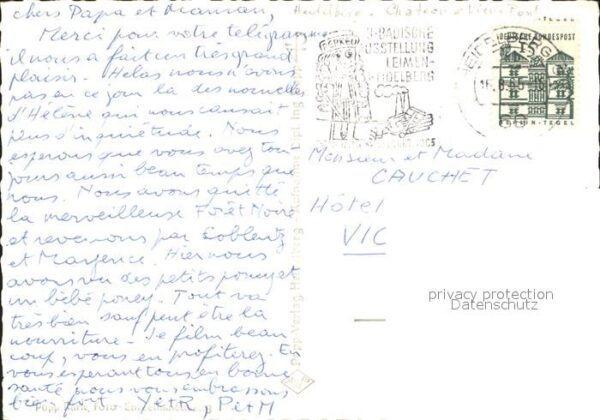 chers Papa et Maman,
Heidelberg - Chateau et Vieux Pont
Merci pour votre télégramme
il nous a fait un très grand
plaisir. Hélas nous n'avons
pas en ce jour là des nouvelles
d'Hélène qui nous causait
plus d'inquiétude. Nous
espérons que vous avez tou-
jours aussi beau temps que
nous. Nous avons quitté
la merveilleuse Forêt Noire
et revenons par Coblentz
et Mayence. Hier nous
avons vu des petits poneys et
un bébé poney. Tout va
très bien sauf peut être la
nourriture. Je filme beau-
coup, vous en profiterez. En
vous espérant tous en bonne
santé nous vous embrassons
bien fort YetR PetM
BADISCHE
AUSSTELLUNG
LEIMEN-
HEIDELBERG
HEIDELBERG
DEUTSCHE BUNDESPOST
15
BERLIN-TEGEL
Monsieur et Madame
CAUCHET
Hôtel
VIC
privacy protection
Datenschutz
Popp-Verlag Heidelberg